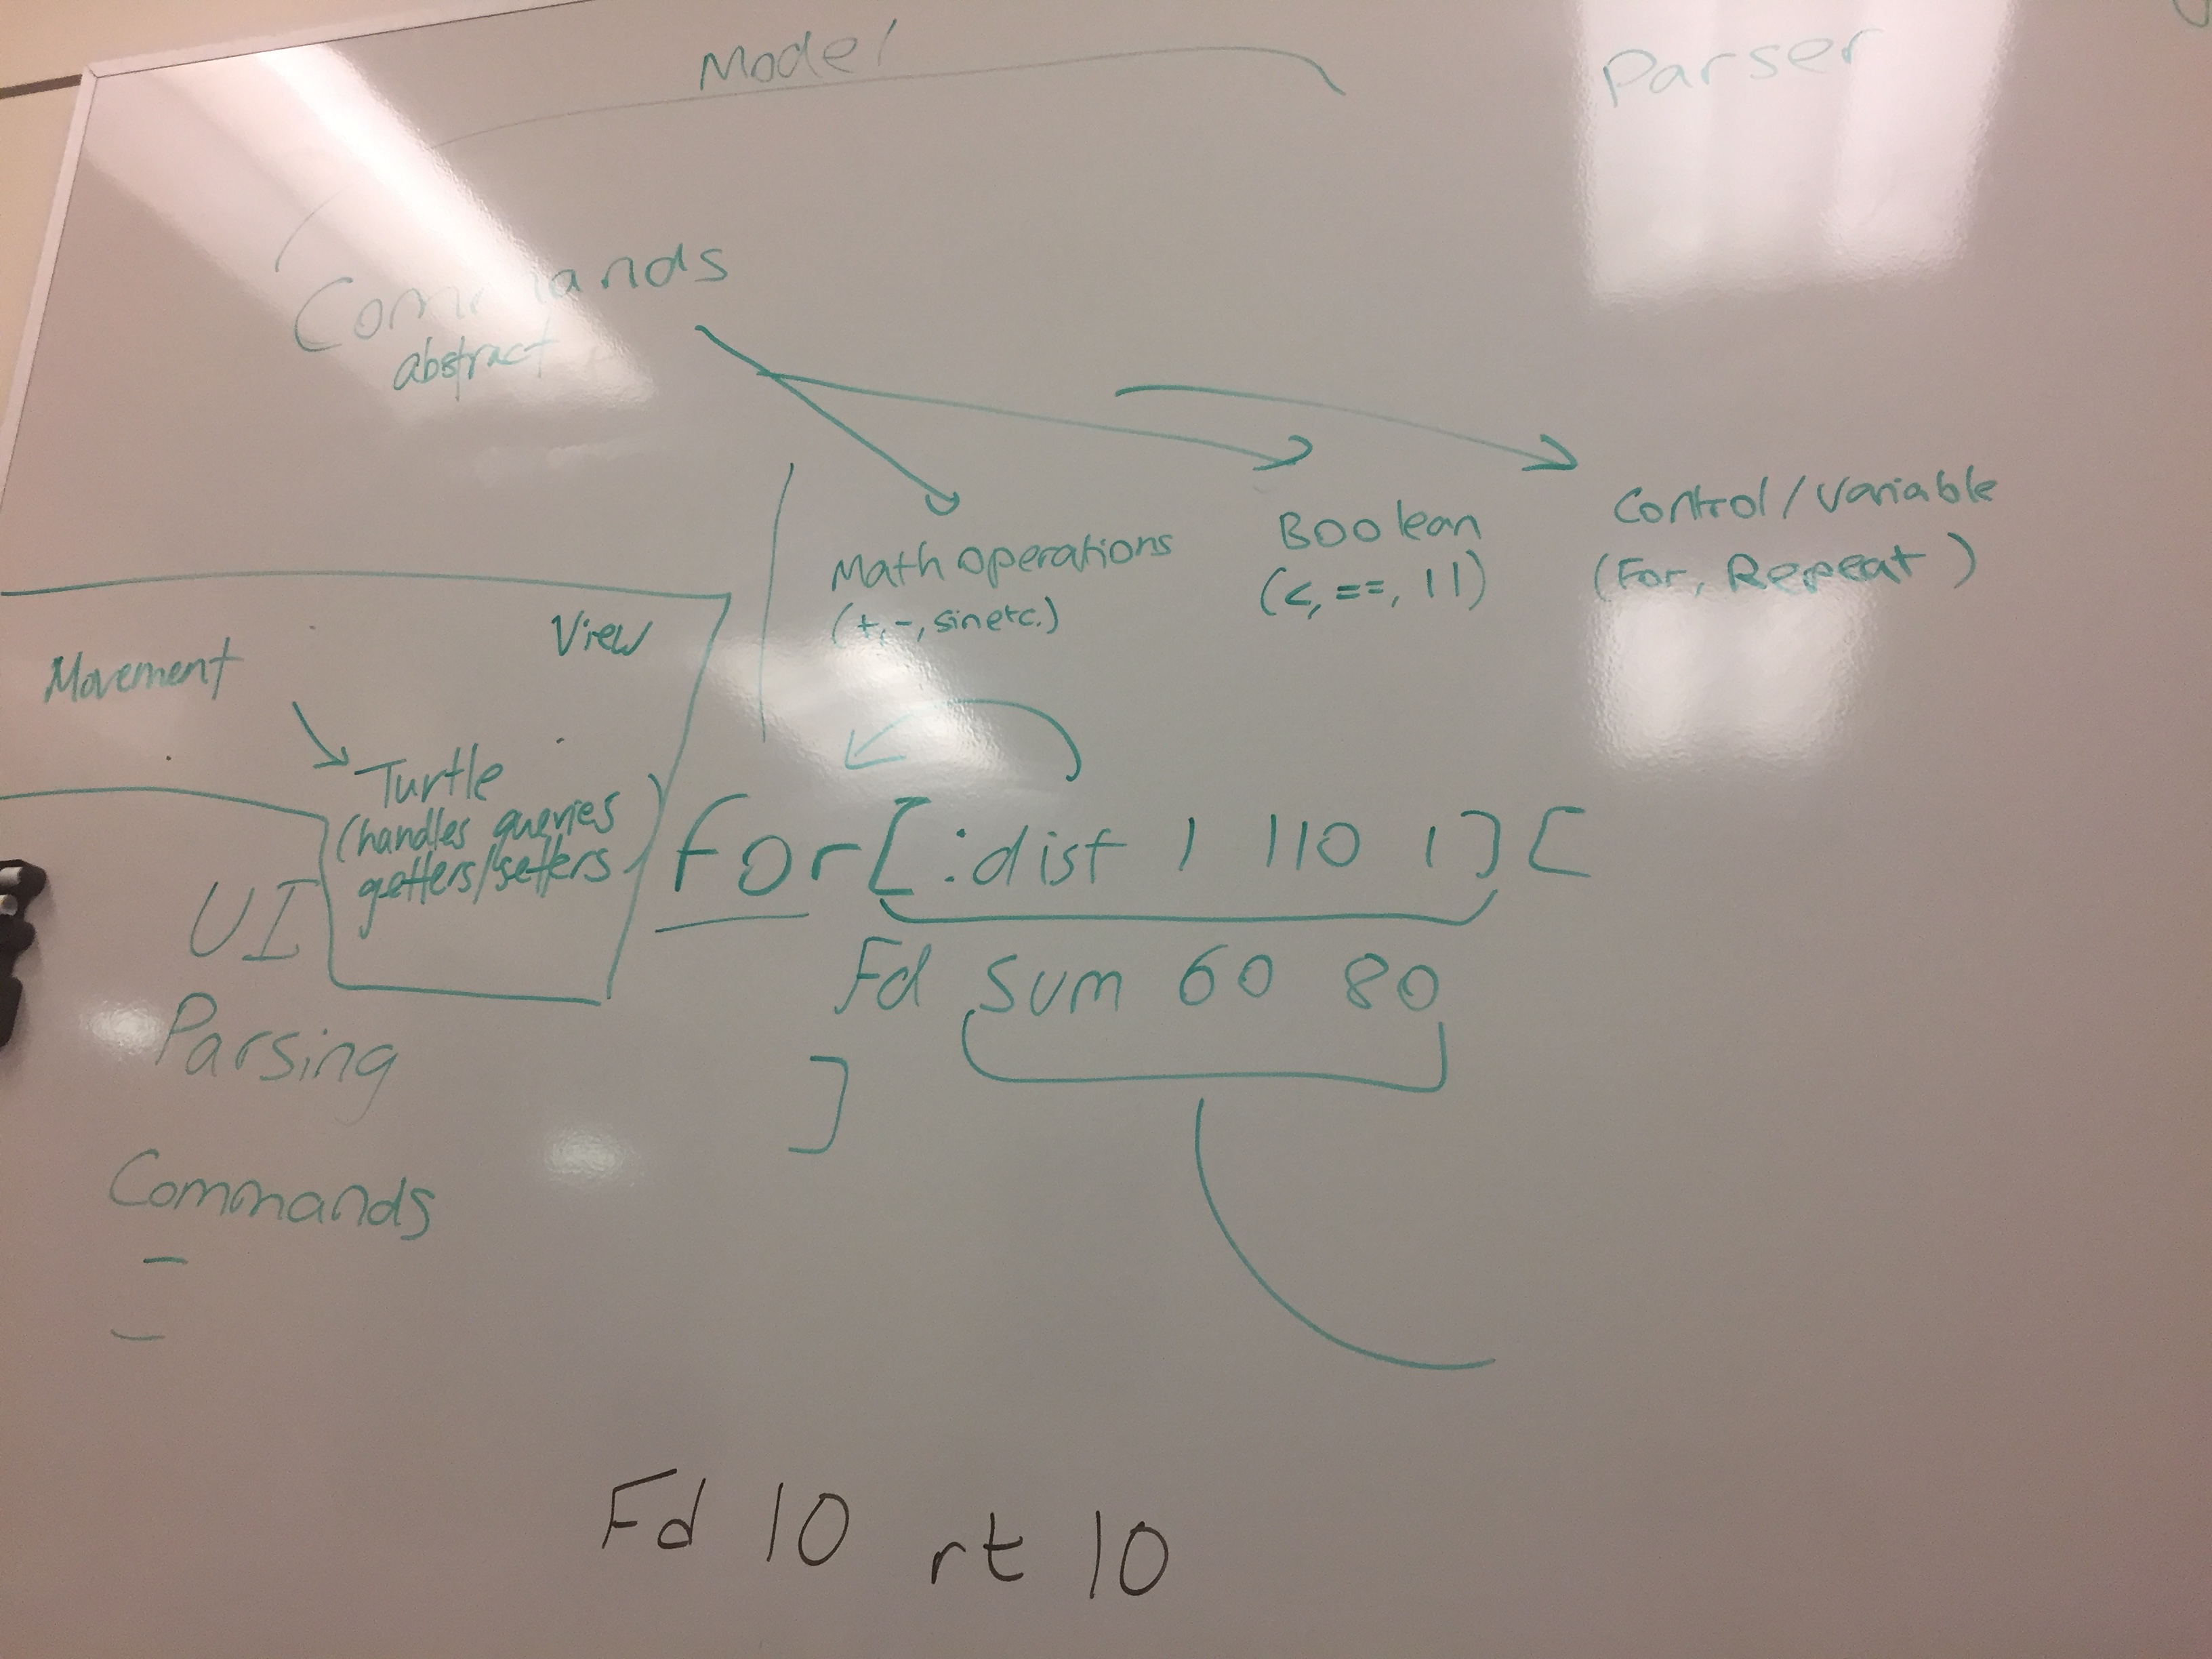 Model
Parser
Commands
abstract
Math operations
(+,-, sin etc.)
Boolean
(<, ==, ||)
Control/Variable
(For, Repeat)
View
Movement
Turtle
(handles queries
getters/setters)
UI
Parsing
Commands
-
-
for[:dist 1 110 1][
Fd sum 60 80
]
Fd 10 rt 10